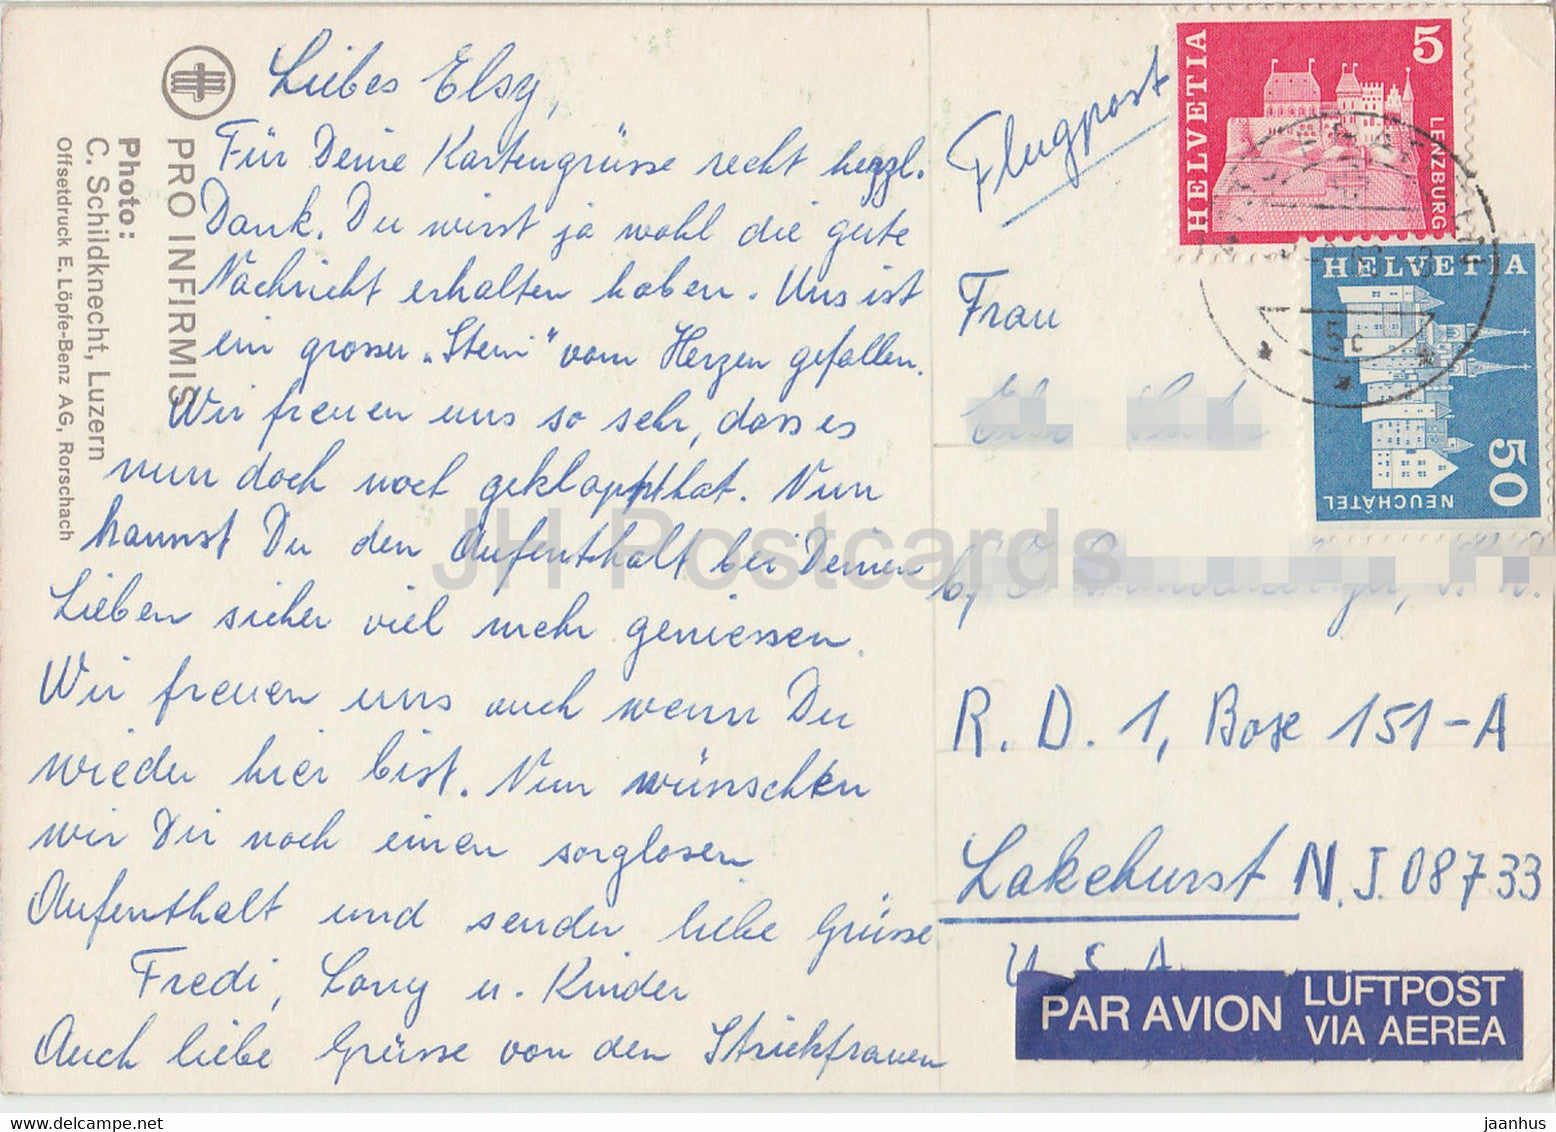 PRO INFIRMIS
Photo:
C. Schildknecht, Luzern
Offsetdruck E. Löpfe-Benz AG, Rorschach
Liebes Elsy,
Für Deine Kartengrüsse recht herzl.
Dank. Du wirst ja wohl die gute
Nachricht erhalten haben. Uns ist
ein grosser „Stein" vom Herzen gefallen.
Wir freuen uns so sehr, dass es
nun doch noch geklappt hat. Nun
kannst Du den Aufenthalt bei Deinen
Lieben sicher viel mehr geniessen.
Wir freuen uns auch wenn Du
wieder hier bist. Nun wünschen
wir Dir noch einen sorglosen
Aufenthalt und senden liebe Grüsse
Fredi, Lony u. Kinder
Auch liebe Grüsse von den Strickfrauen
Flugpost
HELVETIA
5
LENZBURG
HELVETIA
50
NEUCHÂTEL
5c
Frau
R. D. 1, Box 151-A
Lakehurst N.J. 08733
U.S.A.
PAR AVION
LUFTPOST
VIA AEREA
JH Postcards
jaanhus